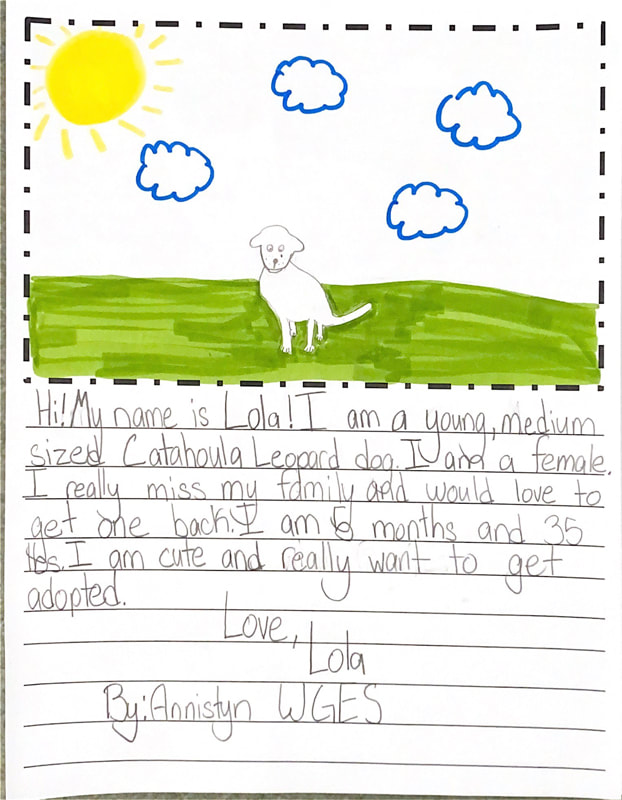 Hi! My name is Lola! I am a young, medium
sized Catahoula Leopard dog. I and a female.
I really miss my family and would love to
get one back. I am 5 months and 35
lbs. I am cute and really want to get
adopted.
Love,
Lola
By: Annistyn WGES